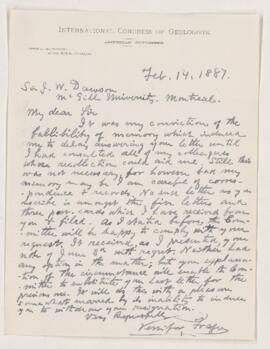 INTERNATIONAL CONGRESS OF GEOLOGISTS
AMERICAN COMMITTEE
Feb. 14. 1887.
Sir J. W. Dawson
McGill University, Montreal.
My dear Sir
It was my conviction of the
fallibility of memory which induced
me to delay answering your letter until
I had consulted all of my colleagues
whose recollection could aid me. Still this
was not necessary for however bad my
memory may be I am careful of corres-
pondence & records. No such letter as you
describe is amongst the five letters and
three post cards which I have received from
you & filed. As I stated before, the Com-
mittee will be happy to comply with your
request. It received, as I presented your
note of June 30 with regret. Neither had
any option in the matter; but your explana-
tion of the circumstances will enable the Com-
mittee to substitute your last letter for the
previous one. It will do this with a pleasure
somewhat marred by its inability to induce
you to withdraw your resignation.
Very Respectfully
Persifor Frazer